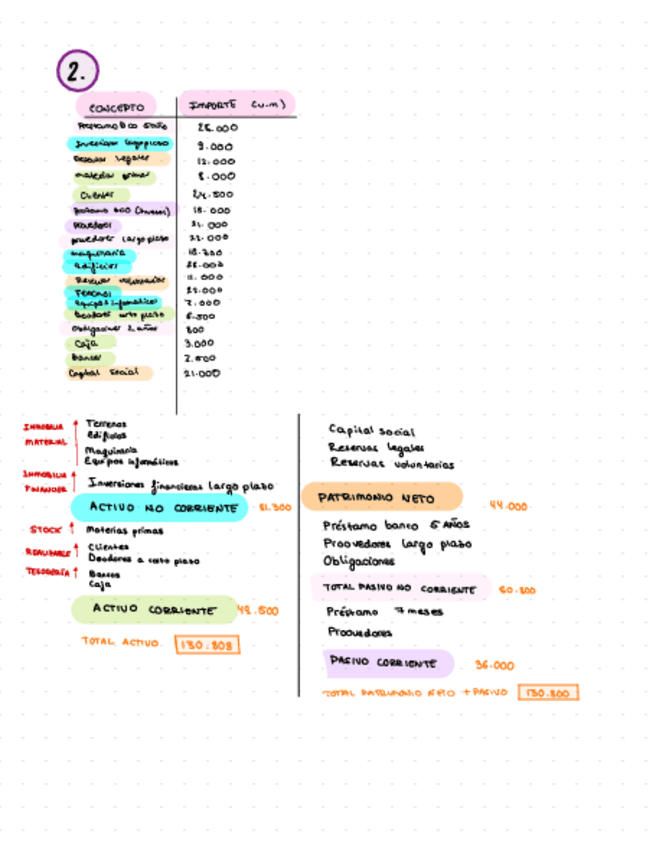 2.
CONCEPTO IMPORTE (u.m)
Préstamo Bco 5 año 25.000
Inversion largo plazo 9.000
Reservas legales 12.000
materias primas 8.000
Clientes 24.500
Préstamo BCO (7meses) 15.000
Proveedores 21.000
proveedores largo plazo
maquinaria
edificios
Reservas voluntarias 11.000
Terrenos
equipos informáticos
Deudores corto plazo
Obligaciones 2 años 800
Caja 3.000
Bancos
Capital social 21.000
INMOBILIA
MATERIAL
Terrenos
edificios
Maquinaria
Equipos informáticos
INMOBILIA
FINANCIER
Inversiones financieras largo plazo
ACTIVO NO CORRIENTE
STOCK Materias primas
REALIZABLE Clientes
Deudores a corto plazo
TESORERÍA Bancos
Caja
ACTIVO CORRIENTE
TOTAL ACTIVO
Capital social
Reservas legales
Reservas voluntarias
PATRIMONIO NETO 44.000
Préstamo banco 5 AÑOS
Proovedores largo plazo
Obligaciones
TOTAL PASIVO NO CORRIENTE
Préstamo 7 meses
Proovedores
PASIVO CORRIENTE 36.000
TOTAL PATRIMONIO NETO + PASIVO 130.800